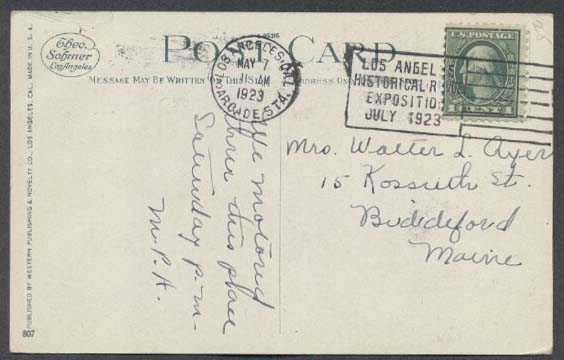 Theo.
Sohmer
Los Angeles
POST CARD
MESSAGE MAY BE WRITTEN ON THIS SIDE
ADDRESS ONLY
LOS ANGELES, CAL.
MAY 7
AM
1923
ARCADE STA.
LOS ANGELES
HISTORICAL REVUE
EXPOSITION
JULY 1923
U.S. POSTAGE
1 CENT 1
Mrs. Walter L. Ayer
15 Kossuth St.
Biddeford
Maine
We motored
thru this place
Saturday p.m.
M. P. H.
PUBLISHED BY WESTERN PUBLISHING & NOVELTY CO., LOS ANGELES, CAL. MADE IN U. S. A.
807